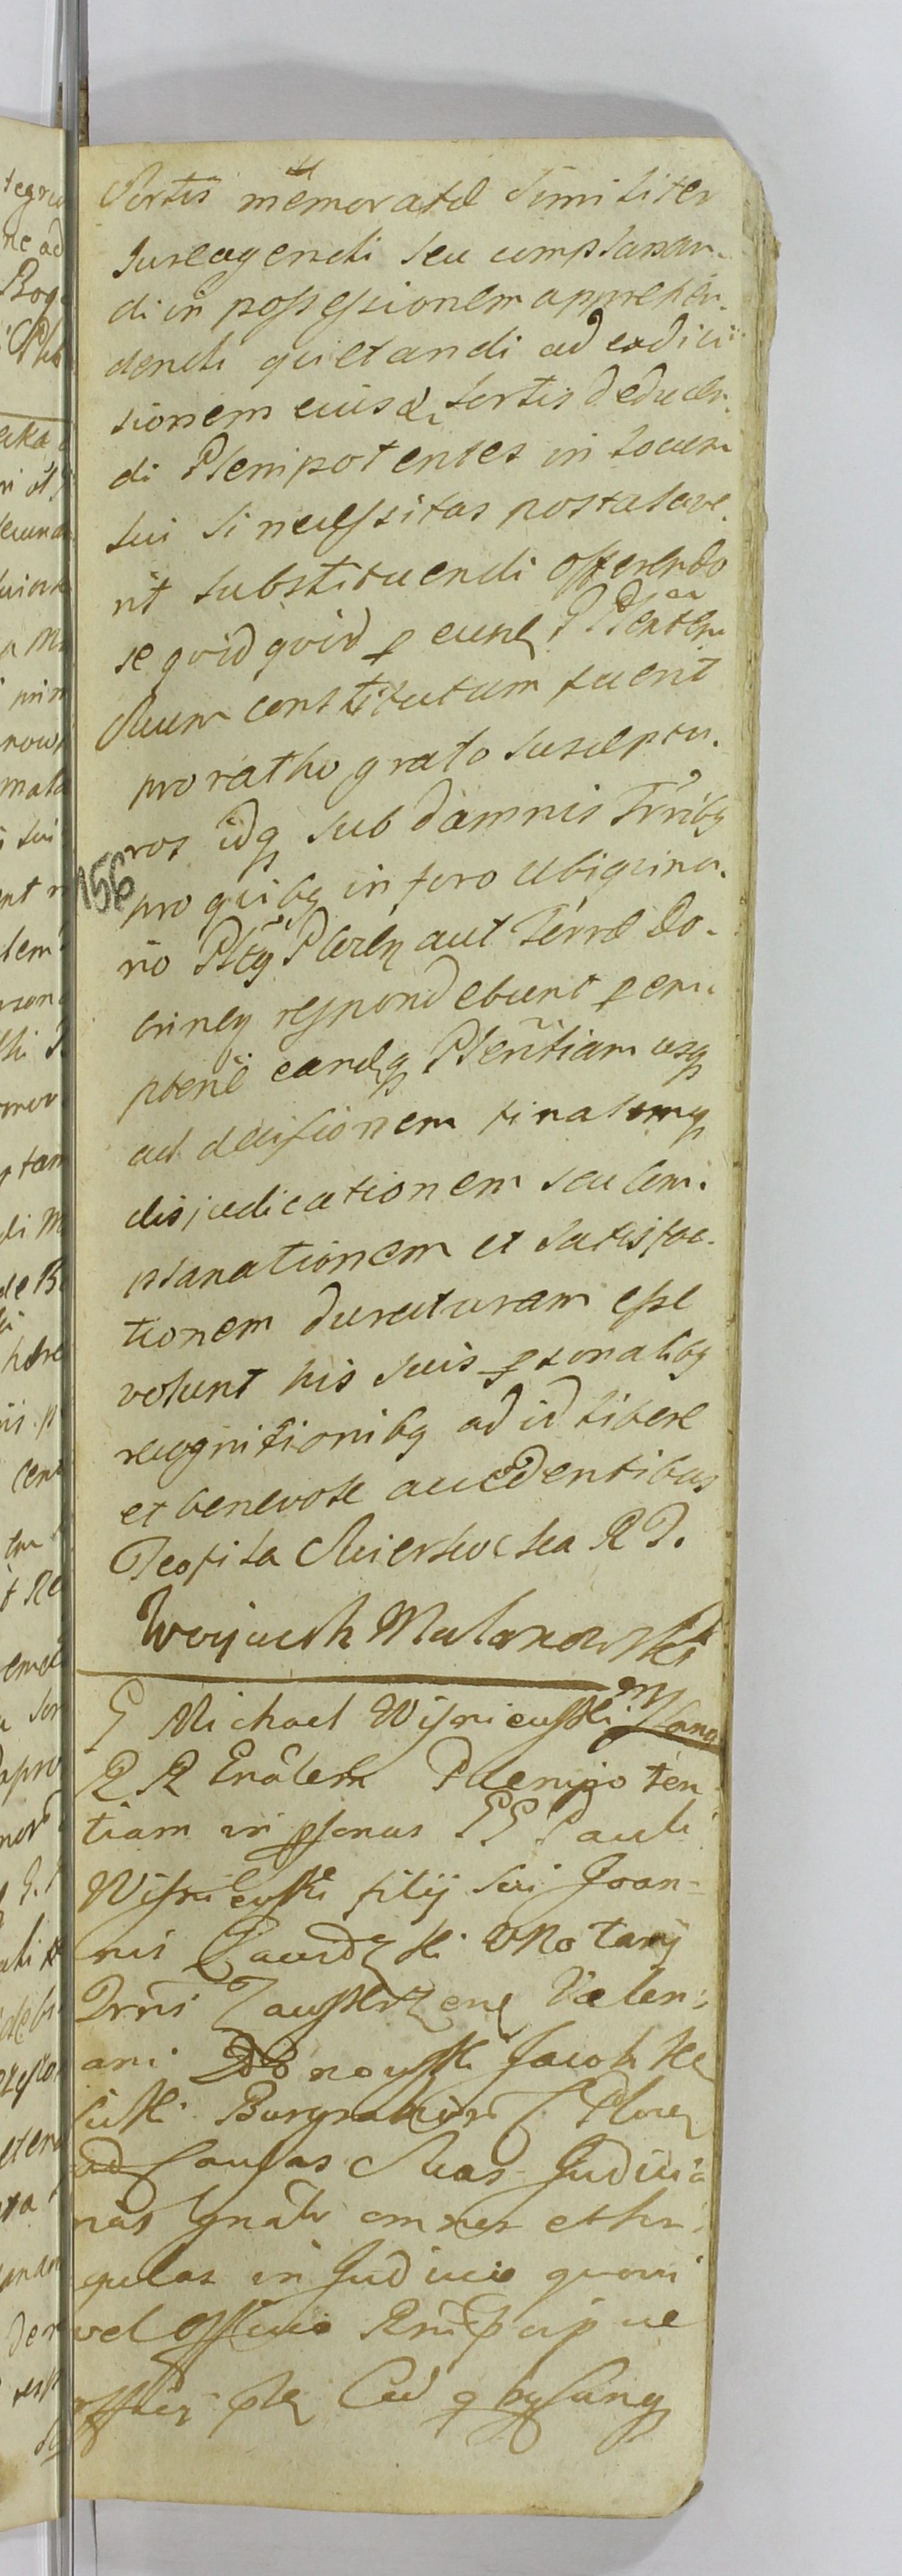 Sortis memoratæ Similiter
Jure agendi seu complanan-
di in possessionem apprehen-
dendi quietandi ad
sionem eius Sortis deducen-
di Plenipotentes in Locum
sui si necessitas postulave-
rit substituendi offerendo
se quid quid p eund Plentem
Suum constitutum fuerit
pro ratho grato susceptu-
ros idq sub damnis Trribg
156
pro quibg in foro ubiquina-
rio Plcg Plcen aut Terræ Do-
brineg respondebunt
eandq Plentiam usq
ad decisionem finalemq
disjudicationem seu com-
planationem et satisfac-
tionem duraturam esse
volunt his suis psonalibg
recognitionibg ad id libere
et benevole accedentibus
Teofila Swierska R P.
Woyciech Malanowski
G Michael Wisniewski
R R Enâlem Plenipoten
tiam in psonas GG Pauli
Wisniewski filij sui Joan-
nis Zawidzki VNotarij
Drni Valeri-
ani Jacobi
Burgrabior Plocen
ad Causas Suas Judicia
rias Gnâtr omnes et sin-
gulas in Judicio quovi
vel Officio